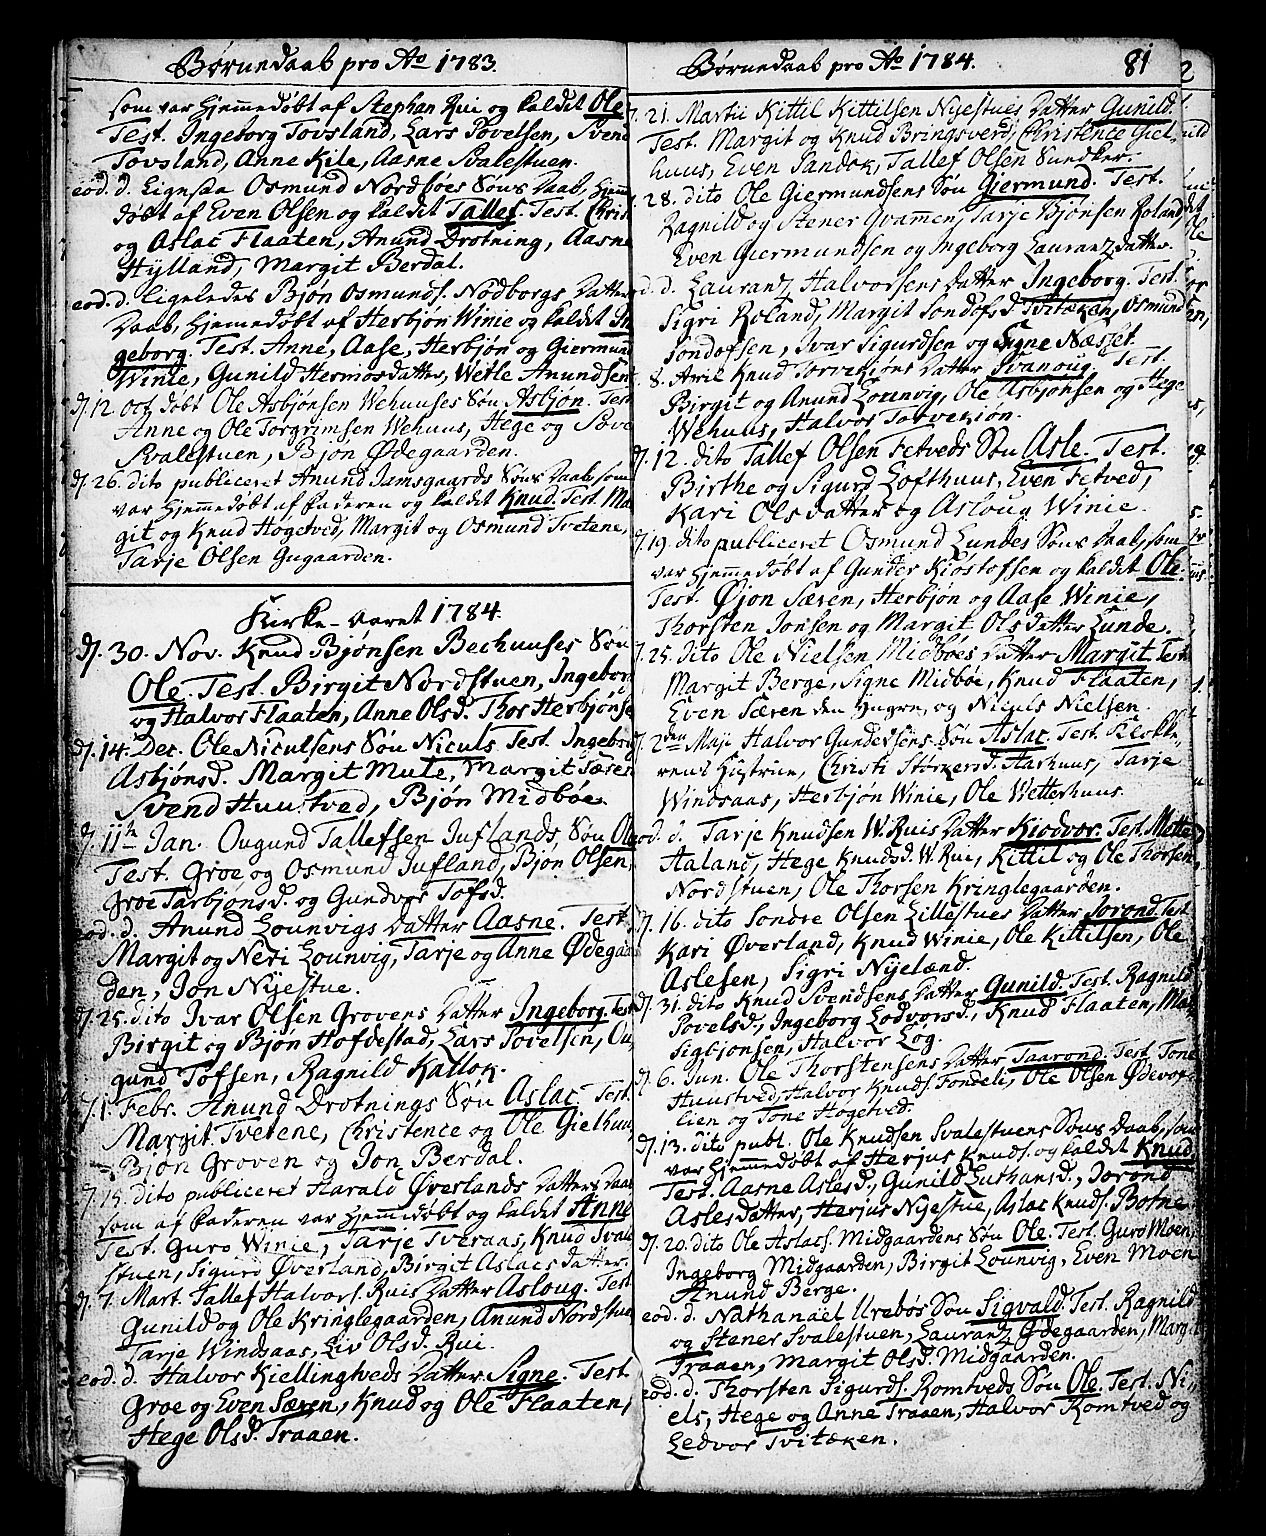 Børnedaab pro Ao 1783.
som var hjemmedøbt af Stephan Rui og kaldet Ole
Test. Ingeborg Tovsland, Lars Povelsen, Svend
Tovsland, Anne Kile, Aasne Svalestuen.
eod. d. Ligesaa Osmund Nordbøes Søns Daab, hjem
døbt af Even Olsen og kaldet Tallef. Test. Christ
og Aslac Flaaten, Anund Drotning, Aasne
Hylland, Margit Berdal.
eod. d. ligeledes Bjøn Osmunds. Nodborgs Datters
Daab, hjemmedøbt af Herbjøn Winie og kaldet In
geborg. Test. Anne, Aase, Herbjøn og Giermund
Winie, Gunild Hermosdatter, Wetle Anundsen
D. 12 Oct. døbt Ole Asbjønsen Wehuuses Søn Asbjøn. Test
Anne og Ole Torgrimsen Wehuus, Hege og Pove
Svalestuen, Bjøn Ødegaarden.
D. 26. dito publiceret Anund Jamsgaards Søns Daab, som
var hjemmedøbt af Faderen og kaldet Knud. Test. Ma
git og Knud Hogetved, Margit og Osmund Tvetene,
Tarje Olsen Gugaarden.
Kirke-aaret 1784.
D. 30. Nov. Knud Bjønsen Bechuuses Søn
Ole. Test. Birgit Nordstuen, Ingeborg
og Halvor Flaaten, Anne Olsd. Thor Herbjønse
D. 14. Dec. Ole Niculsens Søn Niculs. Test. Ingeborg
Asbjønsd. Margit Mule, Margit Særen
Svend Huustved, Bjøn Midbøe.
D. 11te Jan. Ougund Tallefsen Juflands Søn Ole
Test. Groe og Osmund Jufland, Bjøn Olsen,
Groe Tarbjønsd. og Gundvor Tofsd.
eod. d. Anund Lounvigs Datter Aasne. Test.
Margit og Neri Lounvig, Tarje og Anne Ødegaa
den, Jon Nyestue.
D. 25. dito Ivar Olsen Grovens Datter Ingeborg. Test
Birgit og Bjøn Hofdestad, Lars Povelsen, Ou
gund Tofsen, Ragnild Kallok.
D. 1. Febr. Anund Drotnings Søn Aslac. Test.
Margit Tvetene, Christence og Ole Gielhuus,
Bjøn Groven og Jon Berdal.
D. 15. dito publiceret Harald Øverlands Datters Daab
som af Faderen var hjemmedøbt og kaldet Anne
Test. Guro Winie, Tarje Tveraas, Knud Svale
stuen, Sigurd Øverland, Birgit Aslacsdatter.
D. 7. Mart. Tallef Halvors. Ruis Datter Asloug. Test
Gunild og Ole Kringlegaarden, Anund Nordstue
Tarje Windsaas, Liv Olsd. Rui.
eod. d. Halvor Kiellingtveds Datter Signe. Test.
Groe og Even Særen, Knud og Ole Flaaten,
Hege Olsd. Traaen.
Børnedaab pro Ao 1784. 81
D. 21. Martii Kittil Kittilsen Nyestues Datter Gunild.
Test. Margit og Knud Bringsverd, Christence Giel-
huus, Even Sandok, Tallef Olsen Sundker.
28. dito Ole Giermundsens Søn Giermund. Test.
Ragnild og Stener Qvammen, Tarje Bjønsen Roland
Even Giermundsen og Ingeborg Laurantzdatter.
d. d. Laurantz Halvorsens Datter Ingeborg. Test.
Sigri Roland, Margit Sondofsd. Tvitæken, Osmund
Sondofsen, Ivar Sigurdsen og Signe Næsset.
8. April Knud Torvekions Datter Svanoug. Test.
Birgit og Anund Lounvig, Ole Asbjønsen og Hege
Wehuus, Halvor Torvekion.
D. 12. dito Tallef Olsen Fetveds Søn Asle. Test.
Birthe og Sigurd Lofthuus, Even Fetved,
Kari Olsdatter og Asloug Winie.
D. 19. dito publiceret Osmund Lundes Søns Daab, som
var hjemmedøbt af Gunder Kiøstofsen og kaldet Ole.
Test. Øjon Særen, Herbjøn og Aase Winie,
Thorsten Jonsen og Margit Olsdatter Lunde.
D. 25. dito Ole Nielsen Midbøes Datter Margit. Test
Margit Berge, Signe Midbøe, Knud Flaaten,
Even Særen den yngre, og Niculs Nielsen.
D. 2den Maji Halvor Gundersens Søn Aslac. Test. Klokke-
rens Hustrue, Christi Størkersd. Aarhuus, Tarje
Windsaas, Herbjøn Winie, Ole Wetterhuus.
eod. d. Tarje Knudsen W. Ruis Datter Kiodvor. Test. Mette
Aaland, Hege Knudsd. W. Rui, Kittil og Ole Thorsen
Nordstuen, Ole Thorsen Kringlegaarden.
D. 16. dito Sondre Olsen Lillestues Datter Jorond. Test
Kari Øverland, Knud Winie, Ole Kittilsen, Ole
Aslesen, Sigri Nyeland.
D. 31. dito Knud Svendsens Datter Gunild. Test. Ragnild
Povelsd., Ingeborg Lodvorsd., Knud Flaaten,
Sigbjonsen, Halvor Log.
D. 6. Jun. Ole Thorstensens Datter Taarond. Test. Tone
Huustved, Halvor Knuds. Fondeli, Ole Olsen Ødevas-
lien og Tone Hogetved.
D. 13. dito publ. Ole Knudsen Svalestuens Søns Daab, som
var hjemmedøbt af Herjus Knuds. og kaldet Knud
Test. Aasne Aslesd., Gunild Luthansd., Jorond
Aslesdatter, Herjus Nyestue, Aslac Knuds. Bofne
D. 20. dito Ole Aslacs. Midgaardens Søn Ole. Test. Guro Moen,
Ingeborg Midgaarden, Birgit Lounvig, Even Moen
Anund Berge.
eod. d. Nathanaël Urebøs Søn Sigvald. Test. Ragnild
og Stener Svalestuen, Laurantz Ødegaarden, Margit
Traaen, Margit Olsd. Midgaarden.
eod. d. Thorsten Sigurds. Romtveds Søn Ole. Test. Ni-
els, Hege og Anne Traaen, Halvor Romtved og
Ledvor Tvitæken.